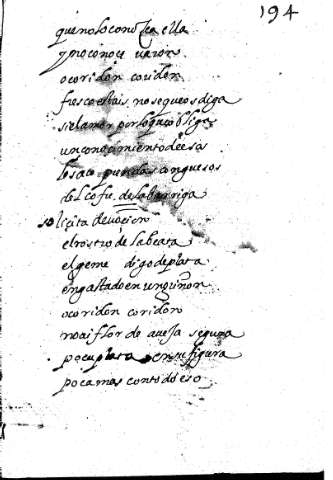 194
que no lo conozca ella
y no conoce varon
o coridon coridon
fresco estais no se que os diga
si el amor por lo que obliga
un conocimiento de esos
lo saco
del cofre de la barriga
solicita devocion
el rostro de la beata
el geme digo de plata
engastado en un
o coridon coridon
no ai flor de aveja segura
poca plata en se figura
poca mas con todo eso